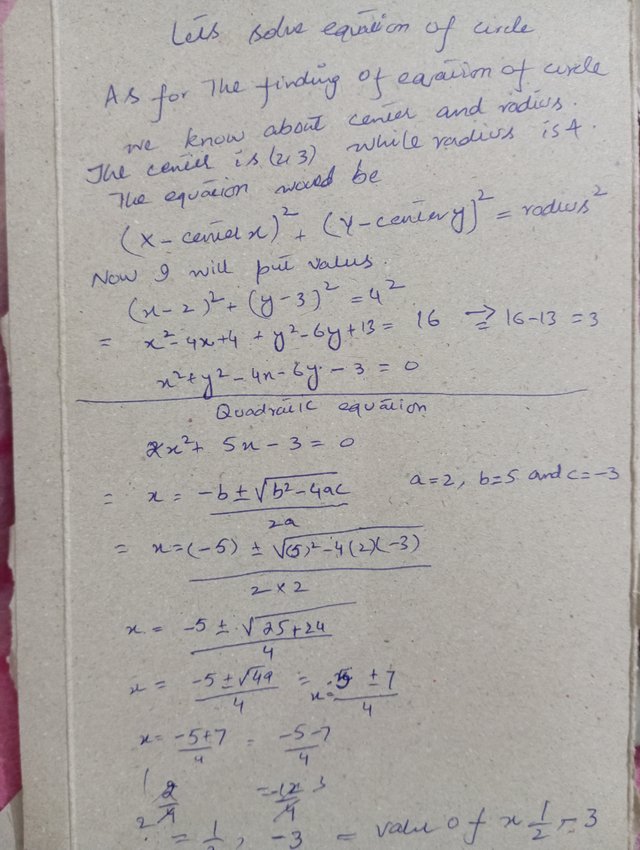 Lets solve equation of circle
As for the finding of eqation of circle
we know about center and radius.
The center is (2,3) while radius is 4.
The equation would be
(x - center x)² + (y - center y)² = radius²
Now I will put values.
(x-2)² + (y-3)² = 4²
= x² - 4x + 4 + y² - 6y + 13 = 16 → 16-13 = 3
x² + y² - 4x - 6y - 3 = 0
Quadratic equation
2x² + 5x - 3 = 0
= x = -b ± √b² - 4ac / 2a a=2, b=5 and c=-3
= x = (-5) ± √(5)² - 4(2)(-3) / 2 × 2
x = -5 ± √25+24 / 4
x = -5 ± √49 / 4 = x = -5 ± 7 / 4
x = -5+7 / 4 = -5-7 / 4
1 2/4 2 = -12/4 3
= 1/2, -3 = value of x 1/2, -3